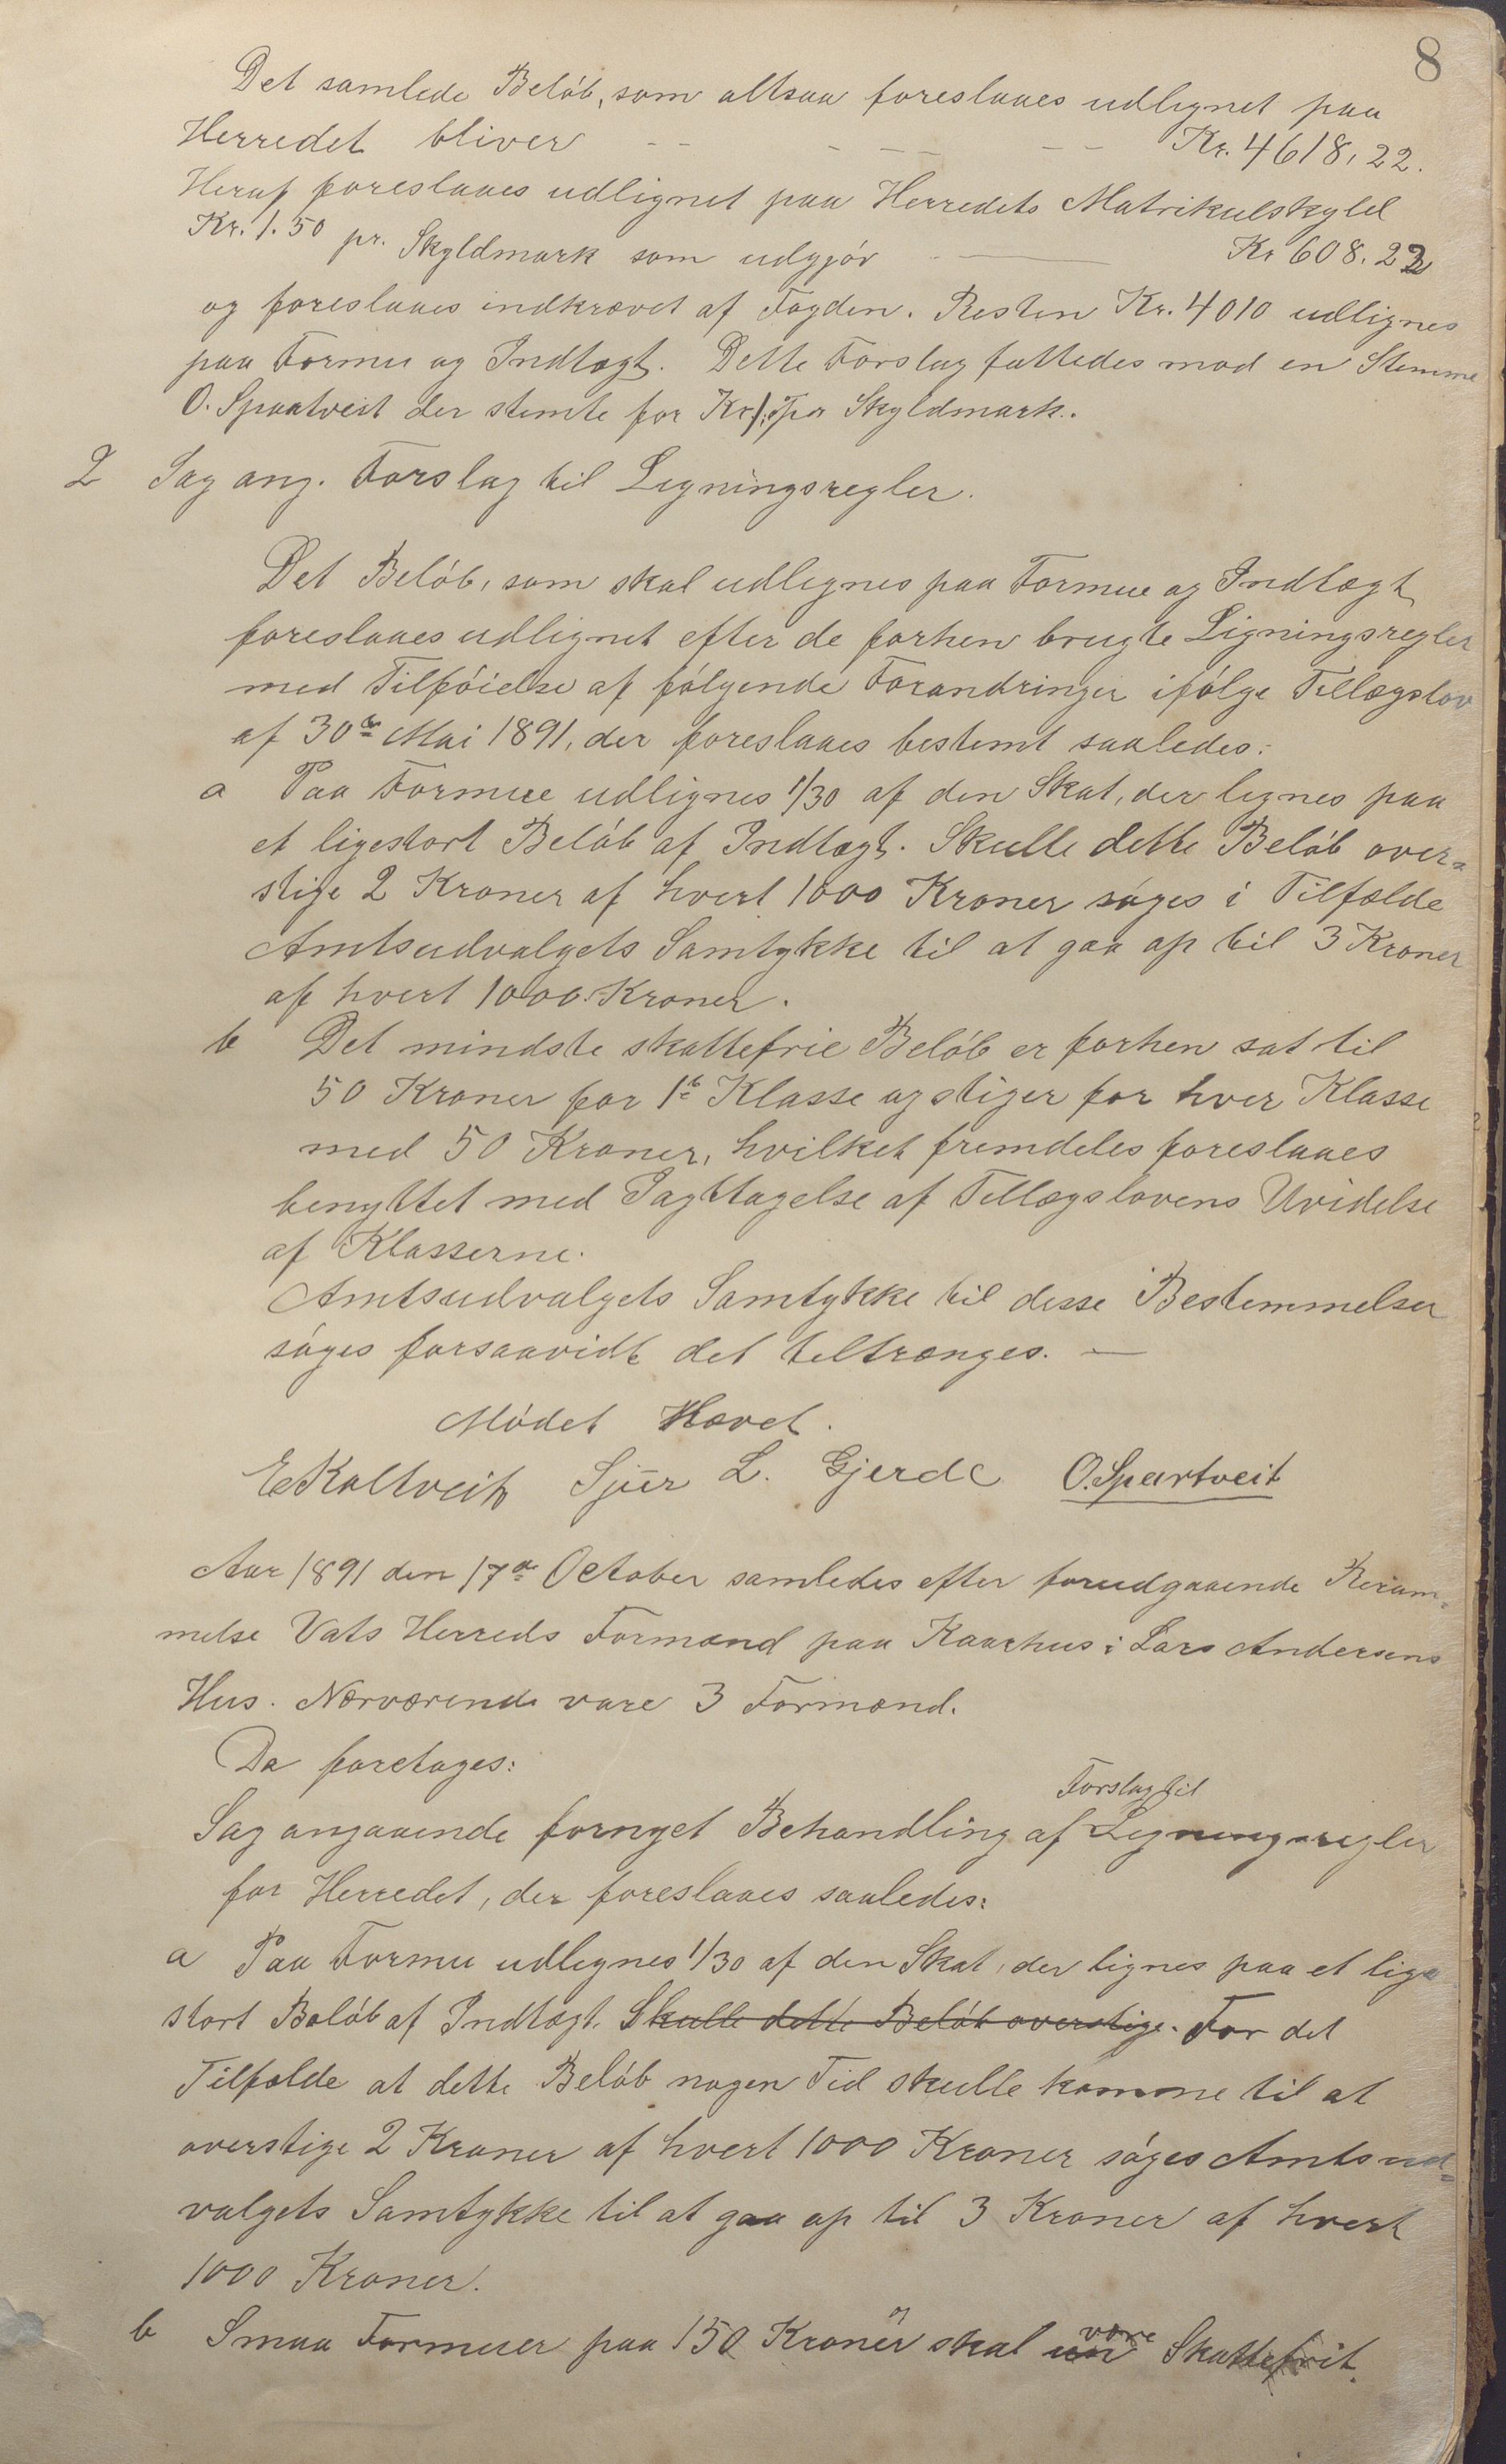 8
Det samlede Beløb, som altsaa foreslaaes udlignet paa
Herredet bliver - - - - - - Kr. 4618,22.
Heraf foreslaaes udlignet paa Herredets Matrikulskyld
Kr. 1.50 pr. Skyldmark som udgjør — Kr 608.22
og foreslaaes indkrævet af Fogden. Resten Kr. 4010 udlignes
paa Formu og Indtægt. Dette Forslag fattedes mod en Stemme
O. Spaatveit der stemte for Kr 1, pr Skyldmark.
2 Sag ang. Forslag til Ligningsregler.
Det Beløb, som skal udlignes paa Formue og Indtægt
foreslaaes udlignet efter de forhen brugte Ligningsregler
med Tilføielse af følgende Forandringer ifølge Tillægslov
af 30te Mai 1891, der foreslaaes bestemt saaledes:
a Paa Formue udlignes 1/30 af den Skat, der lignes paa
et ligestort Beløb af Indtægt. Skulle dette Beløb over=
stige 2 Kroner af hvert 1000 Kroner søges i Tilfælde
Amtsudvalgets Samtykke til at gaa op til 3 Kroner
af hvert 1000 Kroner.
b Det mindste skattefrie Beløb er forhen sat til
50 Kroner for 1te Klasse og stiger for hver Klasse
med 50 Kroner, hvilket fremdeles foreslaaes
benyttet med Iagttagelse af Tillægslovens Uvidelse
af Klasserne.
Amtsudvalgets Samtykke til disse Bestemmelser
søges forsaavidt det tiltrænges. —
Mødet Hævet.
E Kaltveit Sjur L. Gjerde O. Spaatveit
Aar 1891 den 17de October samledes efter forudgaaende Beram=
melse Vats Herreds Formænd paa Kaarhus i Lars Andersens
Hus. Nærværende vare 3 Formænd.
Da foretages:
Forslag til
Sag angaaende fornyet Behandling af Ligningsregler
for Herredet, der foreslaaes saaledes:
a Paa Formu udlignes 1/30 af den Skat, der lignes paa et lige
stort Beløb af Indtægt. Skulle dette Beløb overstige. For det
Tilfælde at dette Beløb nogen Tid skulle komme til at
overstige 2 Kroner af hvert 1000 Kroner søges Amtsud=
valgets Samtykke til at gaa op til 3 Kroner af hvert
1000 Kroner.
b Smaa Formuer paa 150 Kroner skal være Skattefrit.